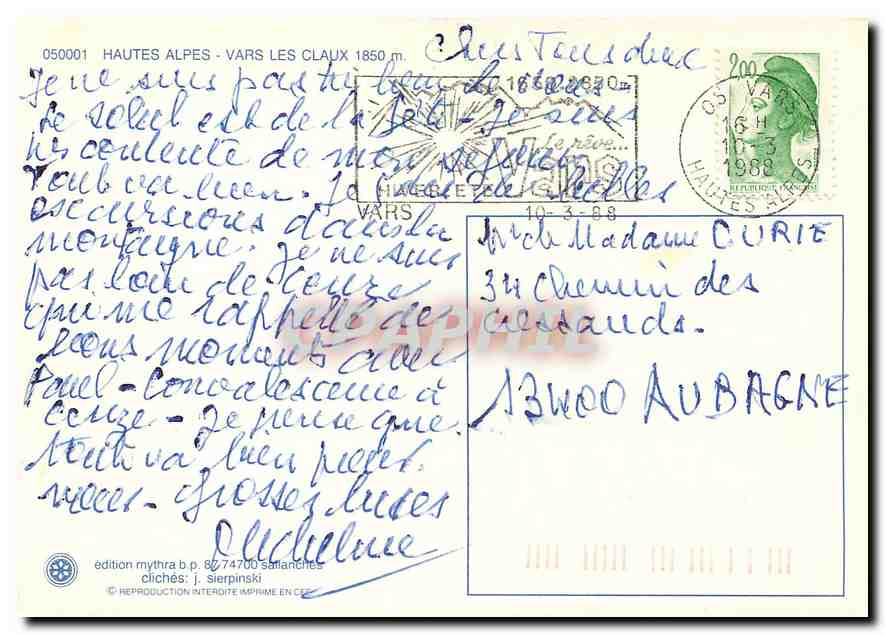 050001 HAUTES ALPES - VARS LES CLAUX 1850 m.
Chers Tous deux
Je ne suis pas très loin de vous -
Le soleil est de la fête - Je suis
très contente de mon séjour
Tout va bien. Je fais de belles
excursions dans la
montagne. Je ne suis
pas loin de Ceuze
qui me rappelle de
bons moments avec
Paul - Convalescence à
Ceuze - Je pense que
tout va bien pour
vous - Grosses bises
Micheline
1650-1850
Le rêve...
Vars
HIVER-ETE
VARS
10-3-88
2,00
REPUBLIQUE FRANÇAISE
05 VARS
16 H
10-3
1988
HAUTES ALPES
Mr et Madame CURIE
34 Chemin des
cressauds.
13400 AUBAGNE
CPAPHIL
édition mythra b.p. 87 74700 sallanches
clichés: j. sierpinski
© REPRODUCTION INTERDITE IMPRIME EN CEE